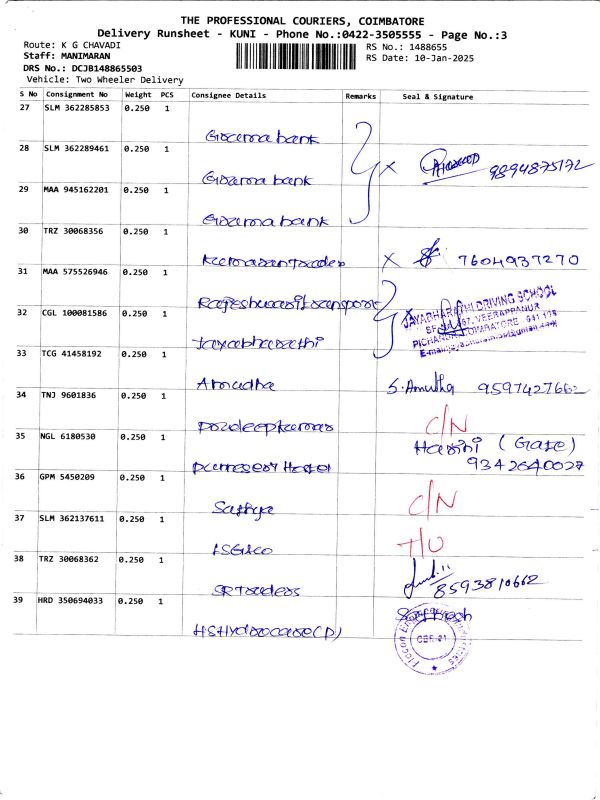 THE PROFESSIONAL COURIERS, COIMBATORE
Delivery Runsheet - KUNI - Phone No.:0422-3505555 - Page No.:3
Route: K G CHAVADI
RS No.: 1488655
Staff: MANIMARAN
RS Date: 10-Jan-2025
DRS No.: DCJB148865503
Vehicle: Two Wheeler Delivery
S No Consignment No Weight PCS Consignee Details Remarks Seal & Signature
27 SLM 362285853 0.250 1
bank
28 SLM 362289461 0.250 1
bank
9894875172
29 MAA 945162201 0.250 1
bank
30 TRZ 30068356 0.250 1
Kumaran Traders
7604937270
31 MAA 575526946 0.250 1
Rajeshwari Transport
32 CGL 100081586 0.250 1
Jayabharathi
JAYABHARATHI DRIVING SCHOOL
VEERAPPANUR
COIMBATORE
33 TCG 41458192 0.250 1
Amudha
S. Amutha 9597427662
34 TNJ 9601836 0.250 1
Pradeepkumar
C/N
35 NGL 6180530 0.250 1
Hotel
Harini (Gate)
9342640027
36 GPM 5450209 0.250 1
Sathya
C/N
37 SLM 362137611 0.250 1
T/O
38 TRZ 30068362 0.250 1
SR Traders
8593810662
39 HRD 350694033 0.250 1
HS Hydrocare (P)
CBE-21